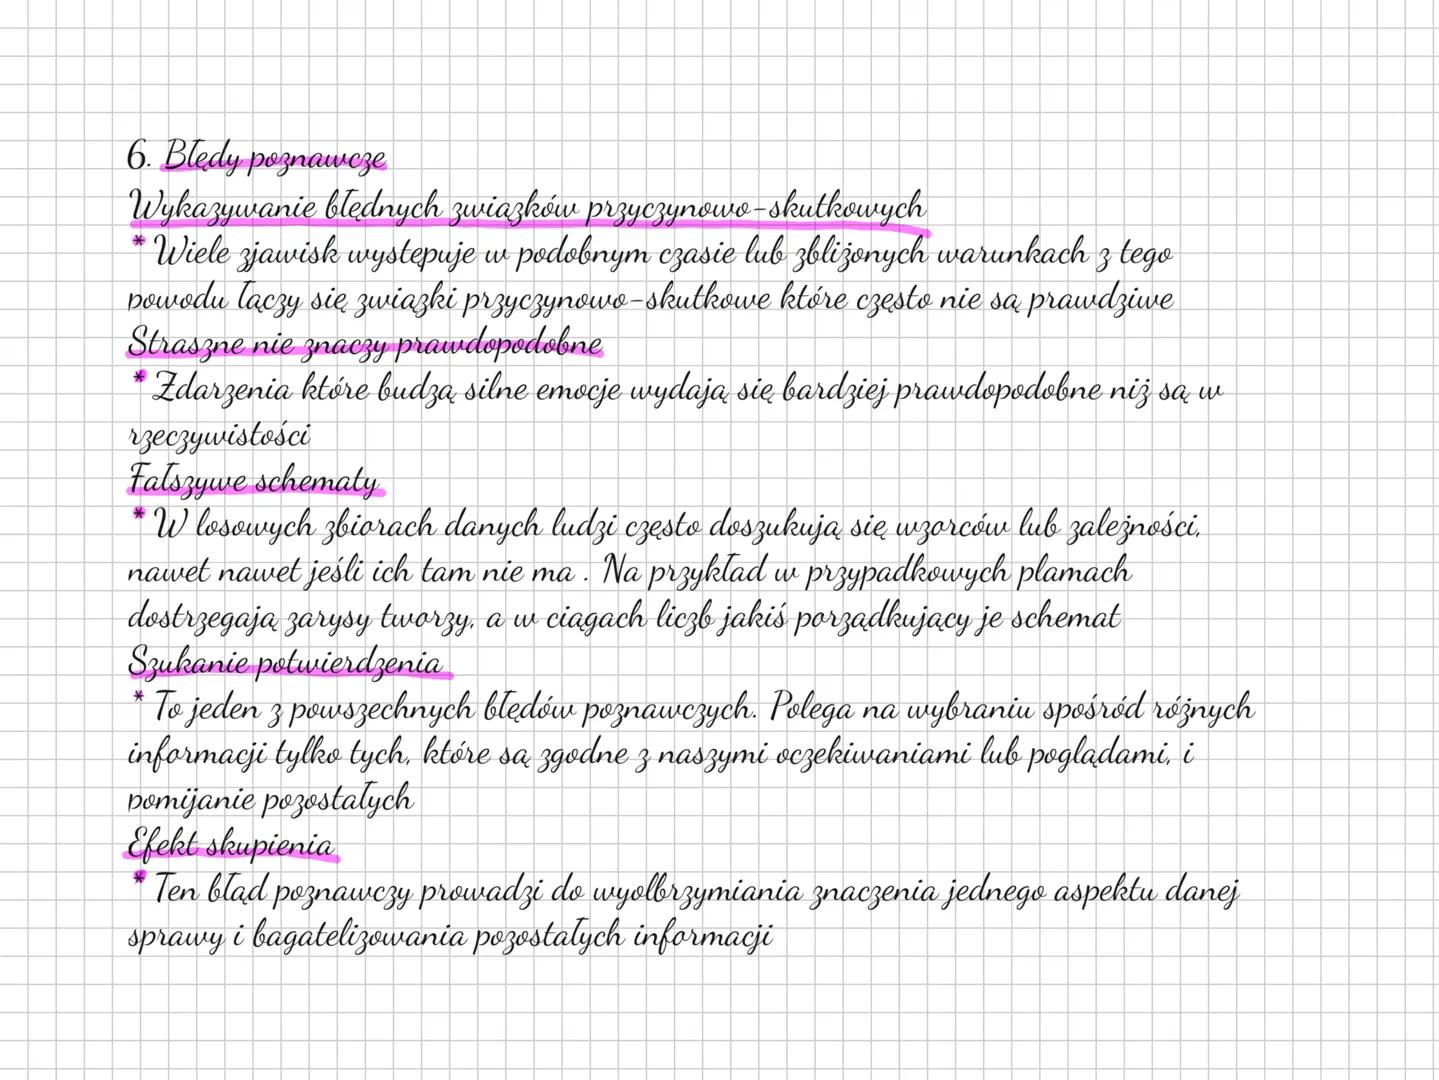 6. Błędy poznawcze
Wykazywanie błędnych związków przyczynowo-skutkowych
* Wiele zjawisk występuje w podobnym czasie lub zbliżonych warunkach z tego
powodu łączy się związki przyczynowo-skutkowe które często nie są prawdziwe
Straszne nie znaczy prawdopodobne
* Zdarzenia które budzą silne emocje wydają się bardziej prawdopodobne niż są w
rzeczywistości
Fałszywe schematy
* W losowych zbiorach danych ludzi często doszukują się wzorców lub zależności,
nawet nawet jeśli ich tam nie ma . Na przykład w przypadkowych plamach
dostrzegają zarysy tworzy, a w ciągach liczb jakiś porządkujący je schemat
Szukanie potwierdzenia
* To jeden z powszechnych błędów poznawczych. Polega na wybraniu spośród różnych
informacji tylko tych, które są zgodne z naszymi oczekiwaniami lub poglądami, i
pomijanie pozostałych
Efekt skupienia
* Ten błąd poznawczy prowadzi do wyolbrzymiania znaczenia jednego aspektu danej
sprawy i bagatelizowania pozostałych informacji